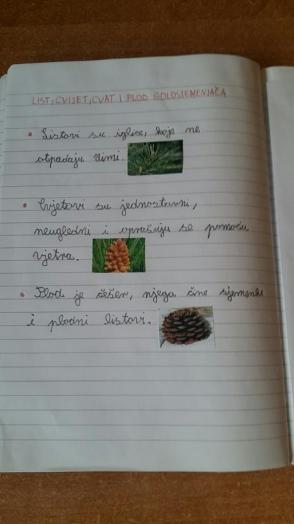 LIST, CVIJET, CVAT I PLOD GOLOSJEMENJAČA
Listovi su iglice, koje ne
otpadaju zimi.
Cvjetovi su jednostavni,
neugledni i oprašuju se pomoću
vjetra.
Plod je češer, njega čine sjemenke
i plodni listovi.